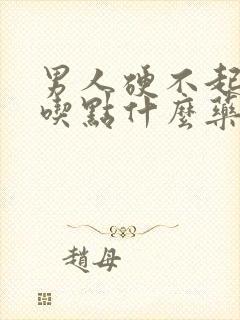 男人硬不起
喫點什麼藥
趙母